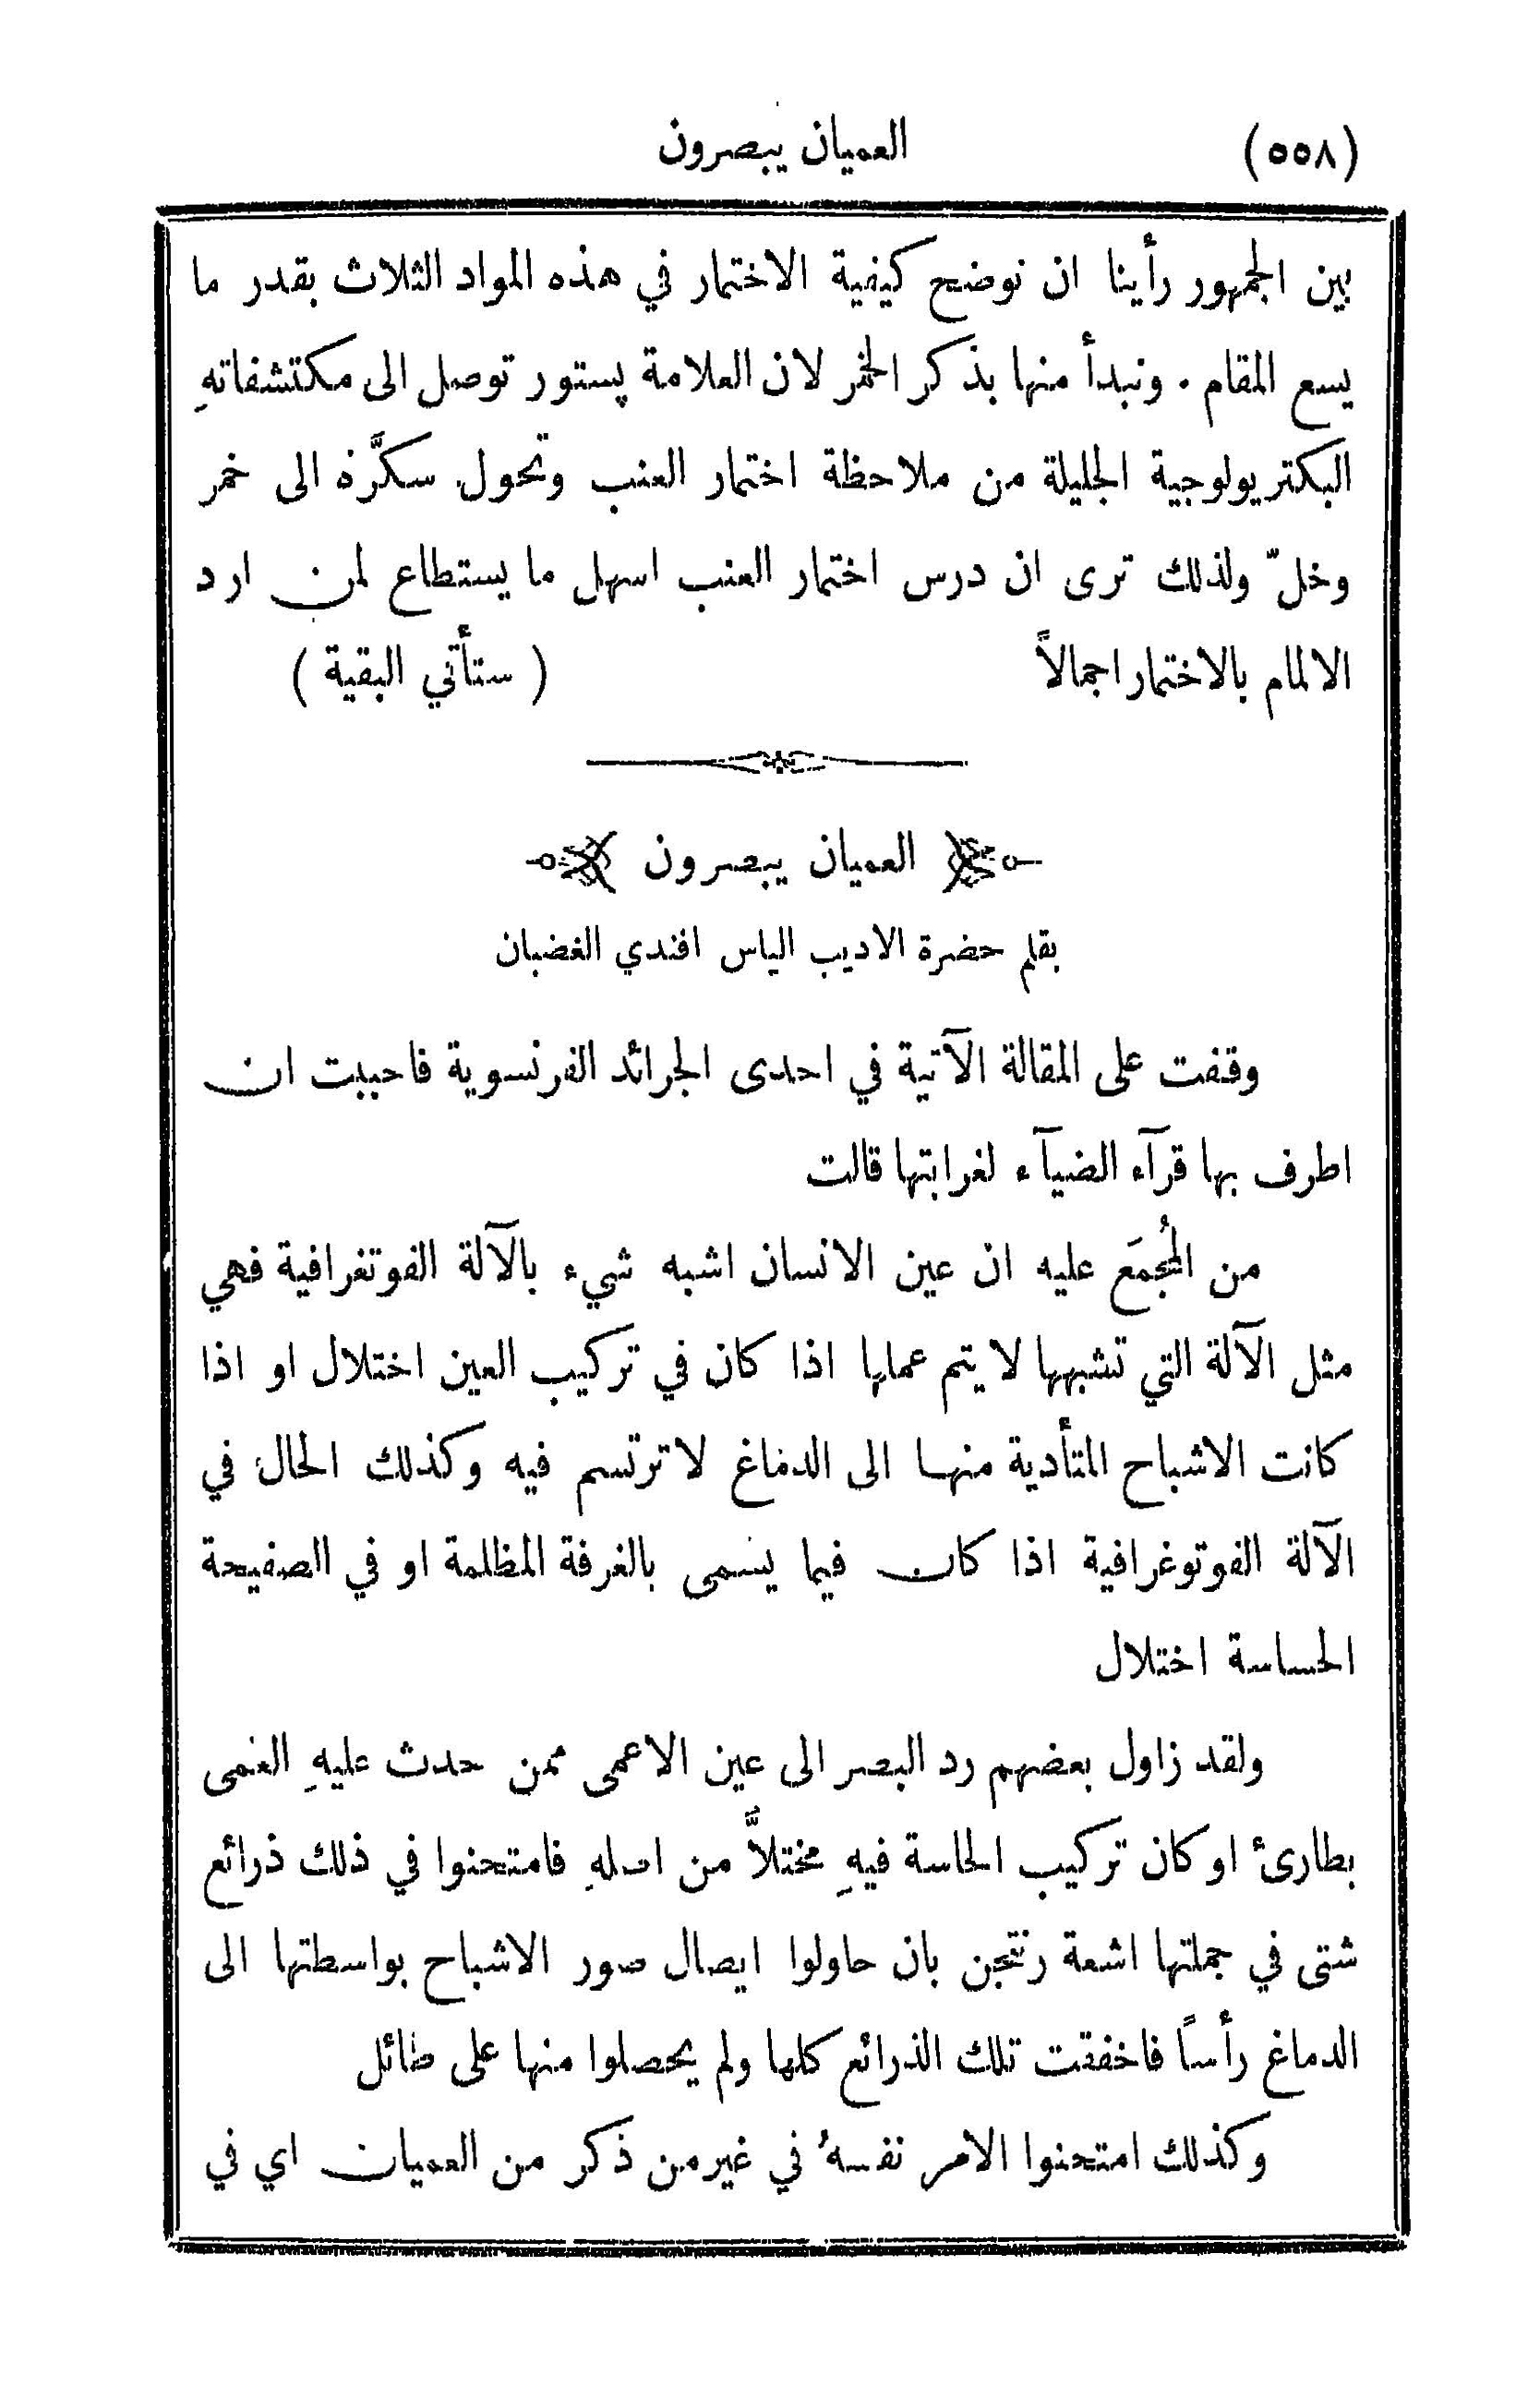 (٥٥٨) العميان يبصرون
بين الجمهور رأينا ان نوضح كيفية الاختمار في هذه المواد الثلاث بقدر ما
يسع المقام ٠ ونبدأ منها بذكر الخمر لان العلامة پستور توصل الى مكتشفاتهِ
البكتريولوجية الجليلة من ملاحظة اختمار العنب وتحول سكَّره الى خمر
وخلّ ولذلك ترى ان درس اختمار العنب اسهل ما يستطاع لمن ارد
الالمام بالاختمار اجمالاً ( ستأتي البقية )
العميان يبصرون
بقلم حضرة الاديب الياس افندي الغضبان
وقفت على المقالة الآتية في احدى الجرائد الفرنسوية فاحببت ان
اطرف بها قرآء الضيآء لغرابتها قالت
من المُجمَع عليه ان عين الانسان اشبه شيء بالآلة الفوتغرافية فهي
مثل الآلة التي تشبهها لا يتم عملها اذا كان في تركيب العين اختلال او اذا
كانت الاشباح المتأدية منها الى الدماغ لا ترتسم فيه وكذلك الحال في
الآلة الفوتوغرافية اذا كان فيما يسمى بالغرفة المظلمة او في الصفيحة
الحساسة اختلال
ولقد زاول بعضهم رد البصر الى عين الاعمى ممن حدث عليهِ العمى
بطارئ او كان تركيب الحاسة فيهِ مختلاًّ من اصلهِ فامتحنوا في ذلك ذرائع
شتى في جملتها اشعة رنتجن بان حاولوا ايصال صور الاشباح بواسطتها الى
الدماغ رأساً فاخفقت تلك الذرائع كلها ولم يحصلوا منها على طائل
وكذلك امتحنوا الامر نفسهُ في غير من ذكر من العميان اي في